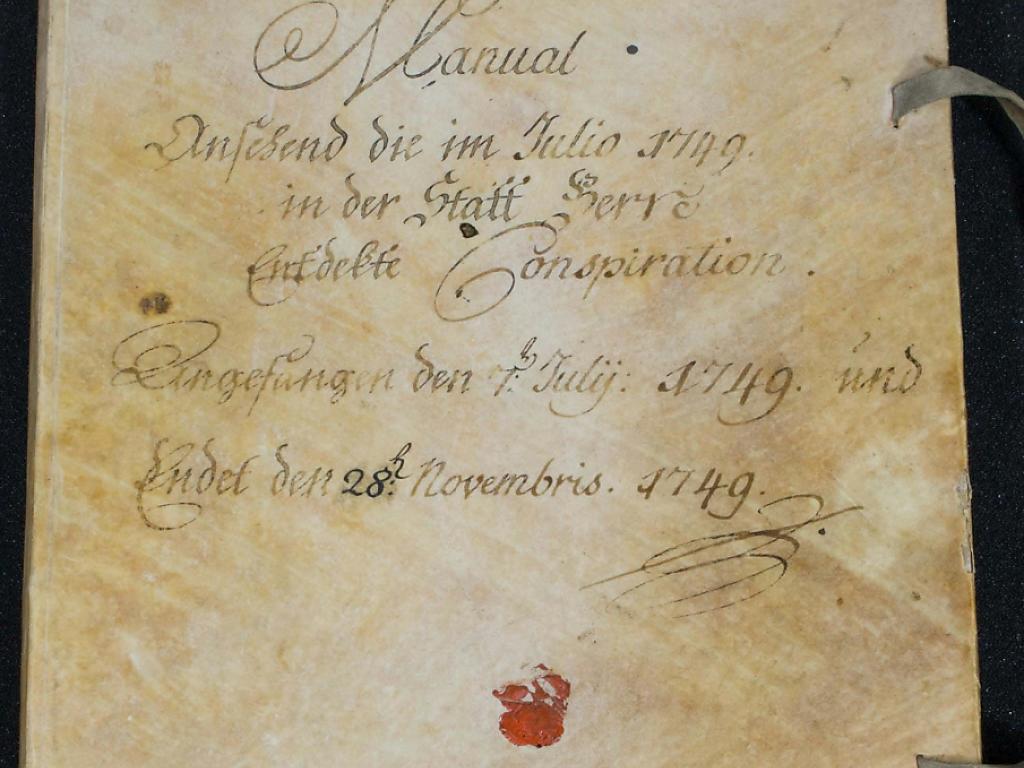 Manual
Ansehend die im Julio 1749.
in der Statt Bern
Entdekte Conspiration.
Angefangen den 7.ᵗ Julÿ: 1749. und
Endet den 28.ᵗ Novembris. 1749.